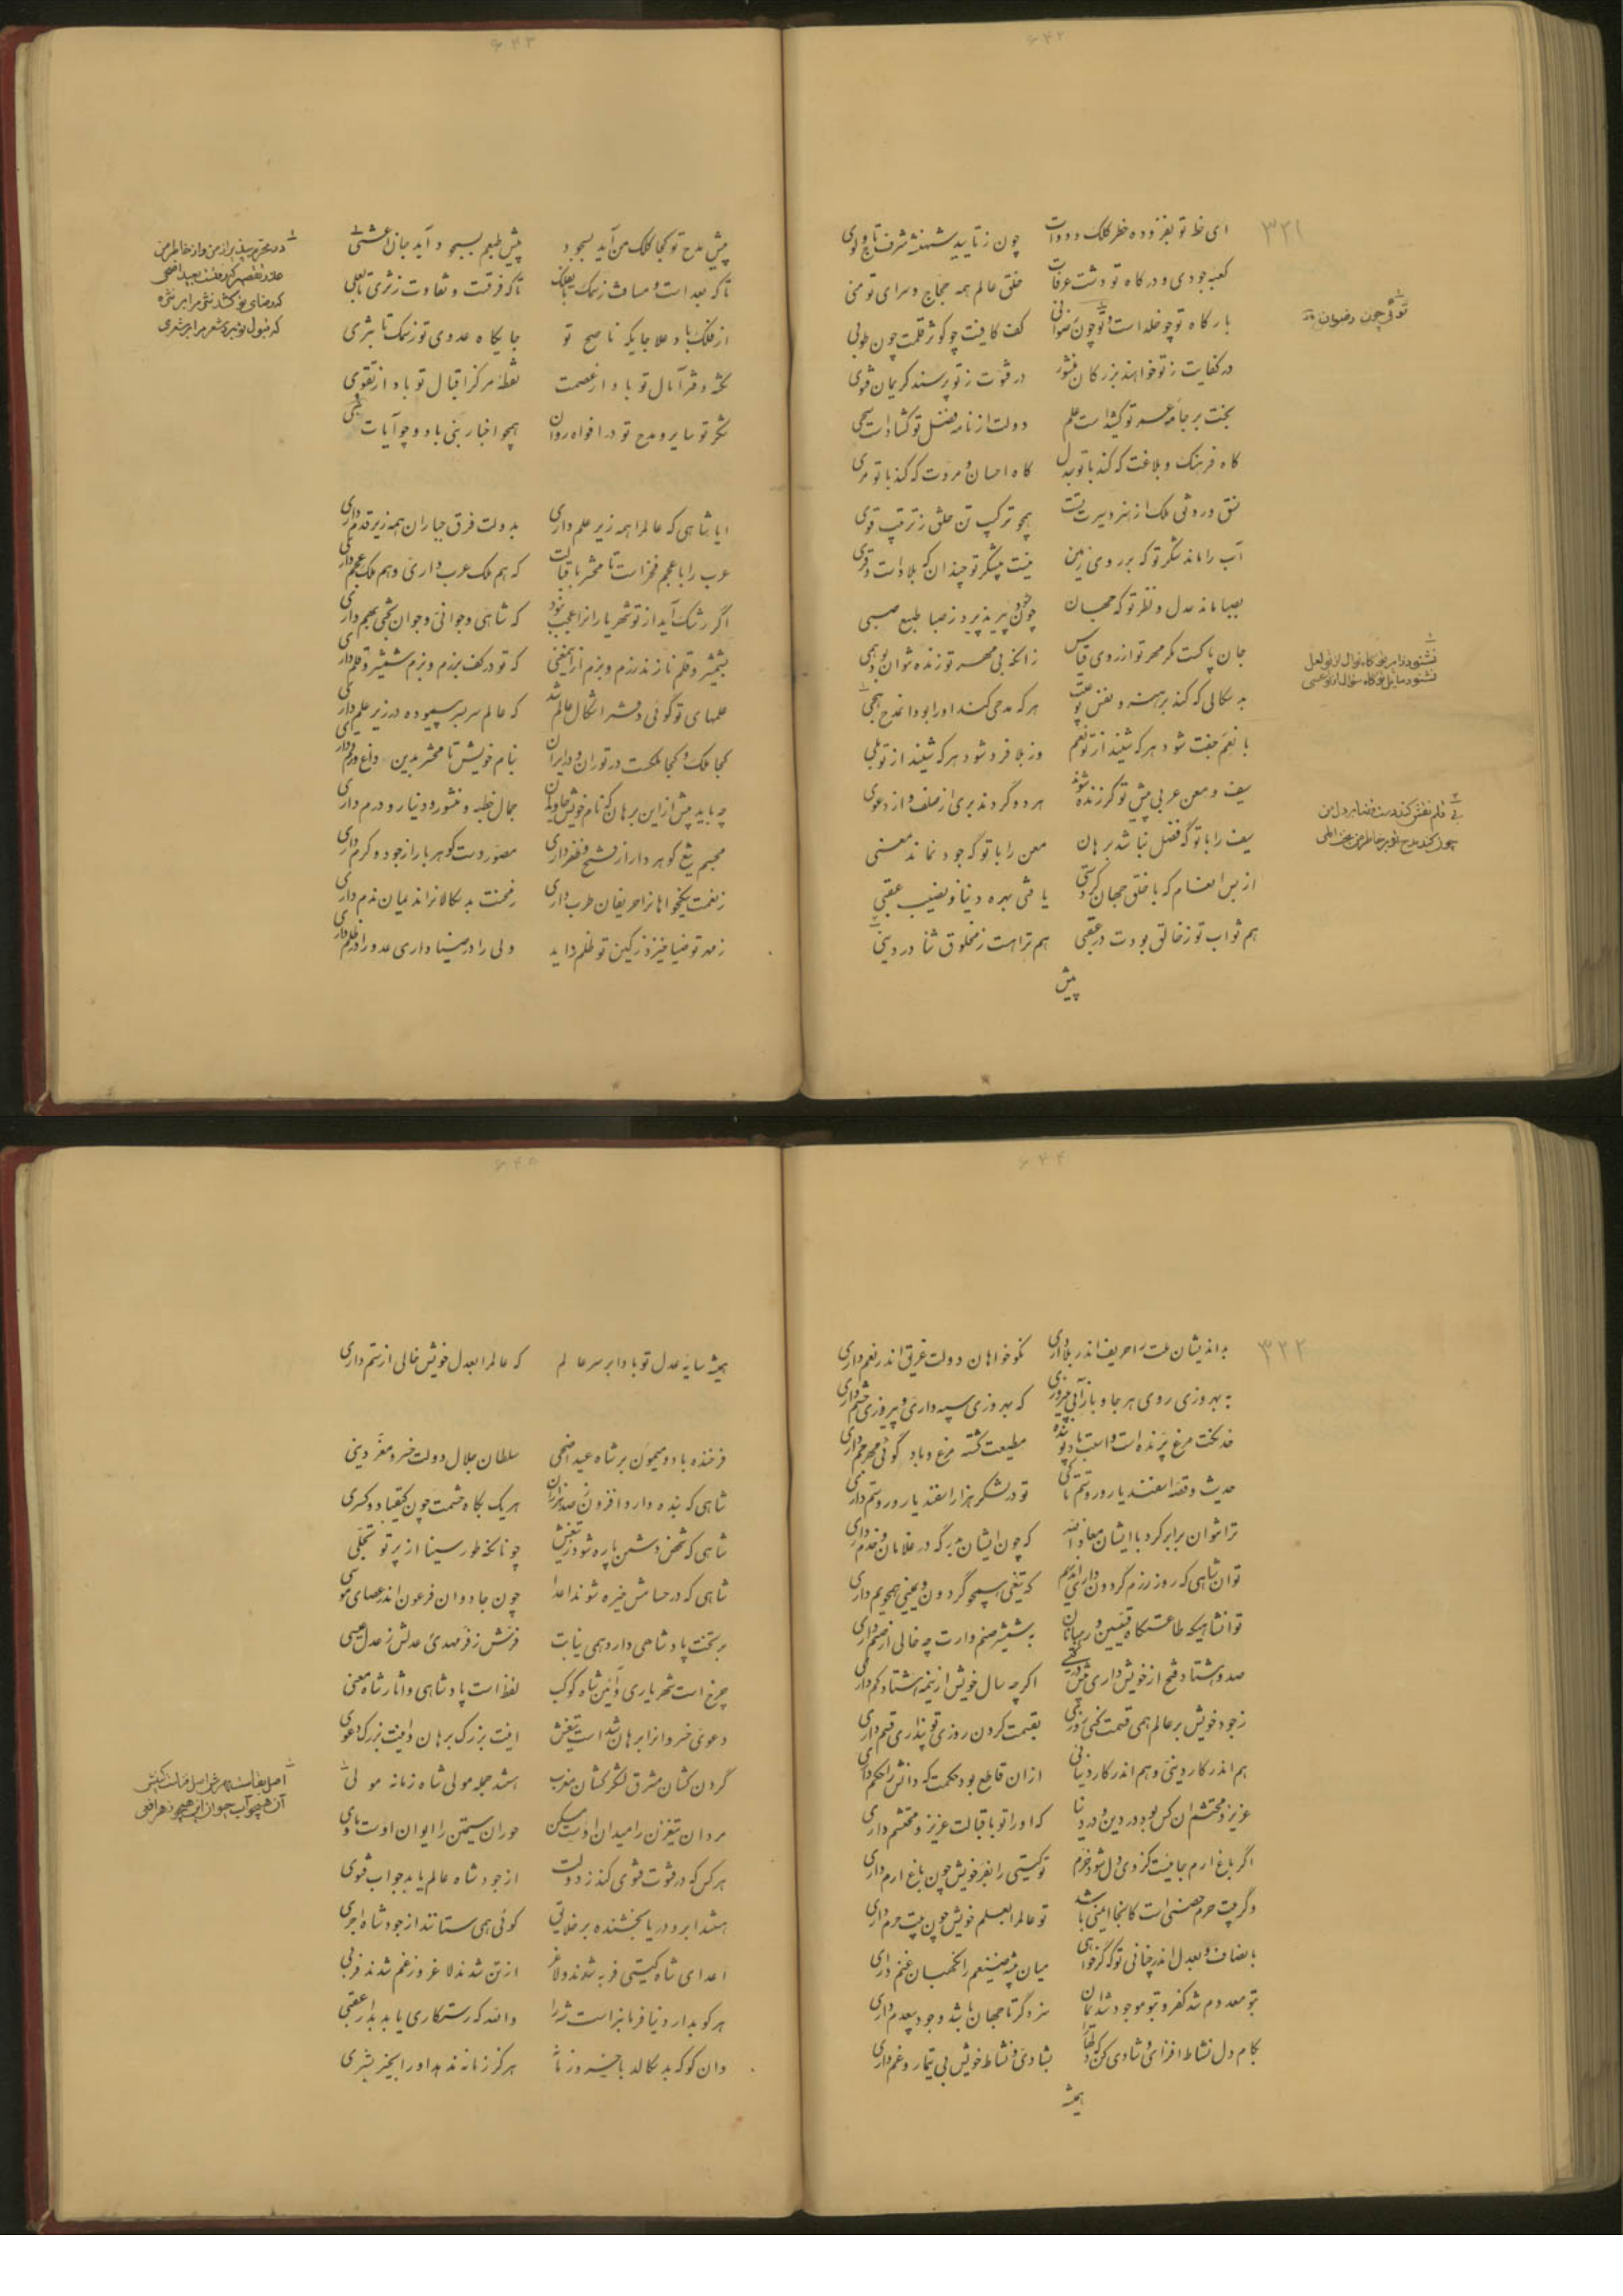 ۶۴۲
۳۲۱
ای خط تو بفزوده خطر کلک و دوات چون ز تأیید شهنشه شرف تاج ولوی
کعبه جودی و درگاه تو دشت عرفات خلق عالم همه حجاج و سرای تو منی
بارگاه تو چو خلد است و تو چون رضوانی کف کافیت چو کوثر قلمت چون طوبی
در کفایت ز تو خواهند بزرگان منشور در فتوت ز تو پرسند کریمان فتوی
بخت بر جامه عمر تو کشیدست علم دولت از نامه فضل تو گشادست سحی
گاه فرهنگ و بلاغت که کند با تو جدل گاه احسان و مروت که کند با تو مری
نسق و رونق ملک از هنر و سیرت تست همچو ترکیب تن خلق ز ترتیب قوی
آب را ماند شکر تو که بر روی زمین نیست بی شکر تو چندان که بلادست و قری
بصبا ماند عدل و نظر تو که جهان چون بپذیرد ز صبا طبع صبی
جان پاکست مگر مهر تو از روی قیاس زانکه بی مهر تو زنده نتوان بود همی
بد سگالی که کند بر هنر و نفس تو عیب هر که مدحی کند او را بود آن مدح هجی
با نعم جفت شود هر که شنید از تو نعم وز بلا فرد شود هر که شنید از تو بلی
سیف و معن عربی پیش تو گر زنده شوند هر دو گردند بری از صلف و از دعوی
سیف را با تو گه فضل نباشد برهان معن را با تو گه جود نماند معنی
از بس انعام که با خلق جهان کردستی یافتی بهره دنیا و نصیب عقبی
هم ثواب تو ز خالق بود در عقبی هم ترا هست ز مخلوق ثنا در دنیی
پیش
توئی چون رضوان
۶۴۳
پیش مدح تو کجا کلک من آید بسجود پیش طبعم بسجود آید جان اعشی
تا که بعد است و مسافت ز سمک تا بفلک تا که فرقت و تفاوت ز ثری تا بعلی
از فلک باد علا جایگه ناصح تو جایگاه عدوی تو ز سمک تا بثری
نکته دفتر آمال تو باد از عصمت نقطه مرکز اقبال تو باد از تقوی
شکر تو سایر و مدح تو در افواه روان همچو اخبار نبی باد و چو آیات نبی
ایا شاهی که عالم را همه زیر علم داری بدولت فرق جباران همه زیر قدم داری
عرب را با عجم فخر است تا محشر باقبالت که هم ملک عرب داری و هم ملک عجم داری
اگر رشک آید از تو شهریاران را عجب نبود که شاهی و جوانی و جوان بختی بهم داری
بشمشیر و قلم نازند رزم و بزم ازین معنی که تو در کف برزم و بزم شمشیر و قلم داری
علمهای تو گوئی دفتر اشکال عالم شد که عالم سربسر پیموده در زیر علم داری
کجا ملک و کجا مملکت در توران و در ایران بنام خویش تا محشر بدین داغ و رقم داری
چه باید پیش ازین برهان که نام خویش جاویدان جمال خطبه و منشور و دینار و درم داری
مجسم تیغ گوهردار از فتح و ظفر داری مصور دست گوهربار از جود و کرم داری
ز نعمت نیکخواهان را حریفان طرب داری ز محنت بد سگالان را ندیمان ندم داری
ز مهر تو ضیا خیزد ز کین تو ظلم زاید ولی را در ضیا داری عدو را در ظلم داری
۶۴۴
۳۲۲
بد اندیشان ملت را حریف اندر بلا داری نکوخواهان دولت غرق اندر نعم داری
به بهروزی روی هر جا و باز آیی بپیروزی که بهروزی سپه داری و پیروزی حشم داری
خدنگت مرغ پرنده است و اسبت باد پوینده مطیعت گشته مرغ و باد گوئی مهر جم داری
حدیث و قصه اسفندیار و رستم تا کی تو در لشکر هزار اسفندیار و روستم داری
ترا نتوان برابر کرد با ایشان معاذ الله که چون ایشان بدرگه در غلامان و خدم داری
تو آن شاهی که روز رزم گردون داری اندر یم که تیغی همچو گردون و یمینی همچو یم داری
تو آنشاهی که طاعتگاه قسیسین و رهبانان بشمشیر صنم وارت چه خالی از صنم داری
صد و هشتاد فتح از خویش داری پیش در گیتی اگرچه سال خویش از نیمه هشتاد کم داری
ز جود خویش بر عالم همی قسمت کنی روزی بقیمت کردن روزی تو پنداری قسم داری
هم اندر کار دینی و هم اندر کار دنیائی از آن قاطع بود حکمت که دانش را حکم داری
عزیز و محتشم آن کس بود در دین و در دنیا که او را تو باقبالت عزیز و محتشم داری
اگر باغ ارم جائیست کز وی دل شود خرم تو گیتی را بفر خویش چون باغ ارم داری
و گر بیت حرم حصنی است کانجا ایمنی باشد تو عالم را بعلم خویش چون بیت حرم داری
بانصاف و بعدل اندر چنانی تو که گر خواهی میان بیشه ضیغم را نگهبان غنم داری
بتو معدوم شد کفر و بتو موجود شد ایمان سزد گر تا جهان باشد وجود بیعدم داری
بکام دل نشاط افزای و شادی کن که دلها را بشادی و نشاط خویش بی تیمار و غم داری
همیشه
۶۴۵
همیشه سایه عدل تو بادا بر سر عالم که عالم را بعدل خویش خالی از ستم داری
فرخنده باد و میمون بر شاه عید اضحی سلطان جلال دولت خسرو معز دینی
شاهی که بنده دارد افزون ز صد هزاران هر یک بگاه حشمت چون کیقباد و کسری
شاهی که شخص دشمن پاره شود ز تیغش چونانکه طور سینا از پرتو تجلی
شاهی که در حسامش خیره شوند اعدا چون جادوان فرعون اندر عصای موسی
بر تخت پادشاهی دارد همی نیابت فرش ز فر مهدی عدلش ز عدل عیسی
چرخ است شهریاری و آئین شاه کوکب لفظ است پادشاهی و آثار شاه معنی
دعوی خسروان را برهان شد است تیغش اینت بزرگ برهان و اینت بزرگ دعوی
گردن کشان مشرق لشکر کشان مغرب هستند جمله مولی شاه زمانه مولی
مردان تیغ زن را میدان اوست مسکن حوران سیمتن را ایوان اوست ماوی
هر کس که در فتوت فتوی کند ز دولت از جود شاه عالم یابد جواب فتوی
هستند ابر و دریا بخشنده بر خلایق گوئی همی ستانند از جود شاه اجری
اعدای شاه گیتی فربه شدند و لاغر از تن شدند لاغر وز غم شدند فربی
هر کو بدار دنیا فرمانبر است شه را والله که رستگاری یابد بدار عقبی
وان کو که بد سگالد با خسرو زمانه هرگز زمانه ندهد او را بخیر بشری
اصل بقاست مهرش اصل فناست کینش
آن همچو آب حیوان این همچو زهر افعی